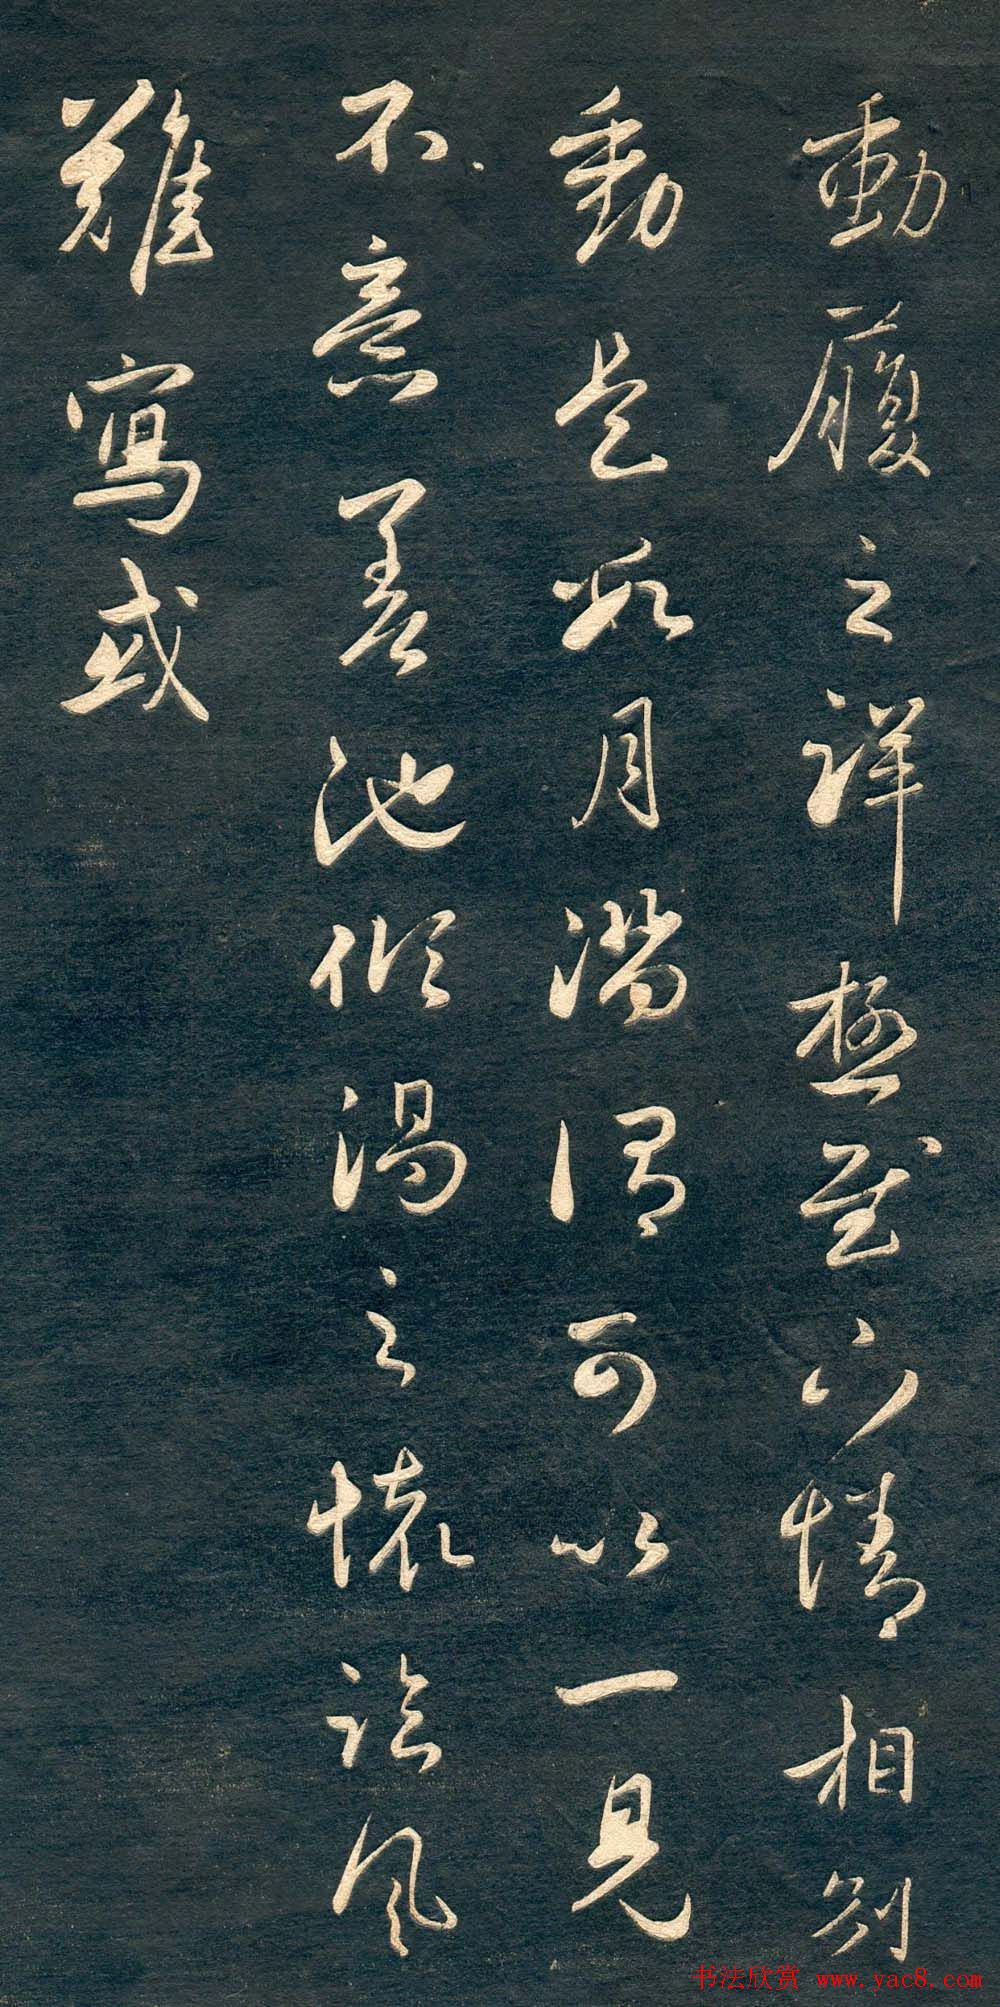 動履之詳極慰下情相別
動是數月滿謂可以一見
不意差池傾渴之懷臨風
難寫或
书法欣赏 www.yac8.com